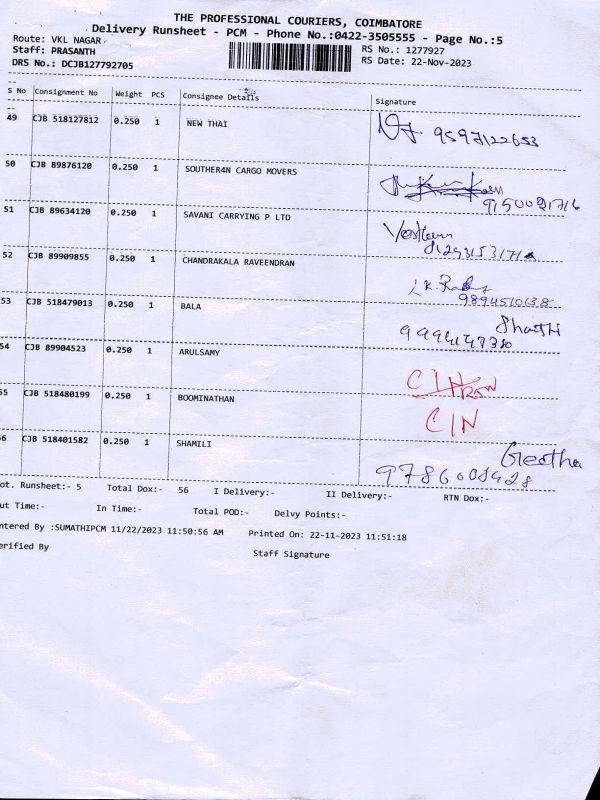 THE PROFESSIONAL COURIERS, COIMBATORE
Delivery Runsheet - PCM - Phone No.:0422-3505555 - Page No.:5
Route: VKL NAGAR
RS No.: 1277927
Staff: PRASANTH
RS Date: 22-Nov-2023
DRS No.: DCJB127792705
S No Consignment No Weight PCS Consignee Details Signature
49 CJB 518127812 0.250 1 NEW THAI
9597122653
50 CJB 89876120 0.250 1 SOUTHER4N CARGO MOVERS
51 CJB 89634120 0.250 1 SAVANI CARRYING P LTD
52 CJB 89909855 0.250 1 CHANDRAKALA RAVEENDRAN
9894510638
53 CJB 518479013 0.250 1 BALA
54 CJB 89904523 0.250 1 ARULSAMY
55 CJB 518480199 0.250 1 BOOMINATHAN
C/N
56 CJB 518401582 0.250 1 SHAMILI
Geetha
9786008428
ot. Runsheet:- 5 Total Dox:- 56 I Delivery:- II Delivery:- RTN Dox:-
ut Time:- In Time:- Total POD:- Delvy Points:-
ntered By :SUMATHIPCM 11/22/2023 11:50:56 AM Printed On: 22-11-2023 11:51:18
erified By Staff Signature